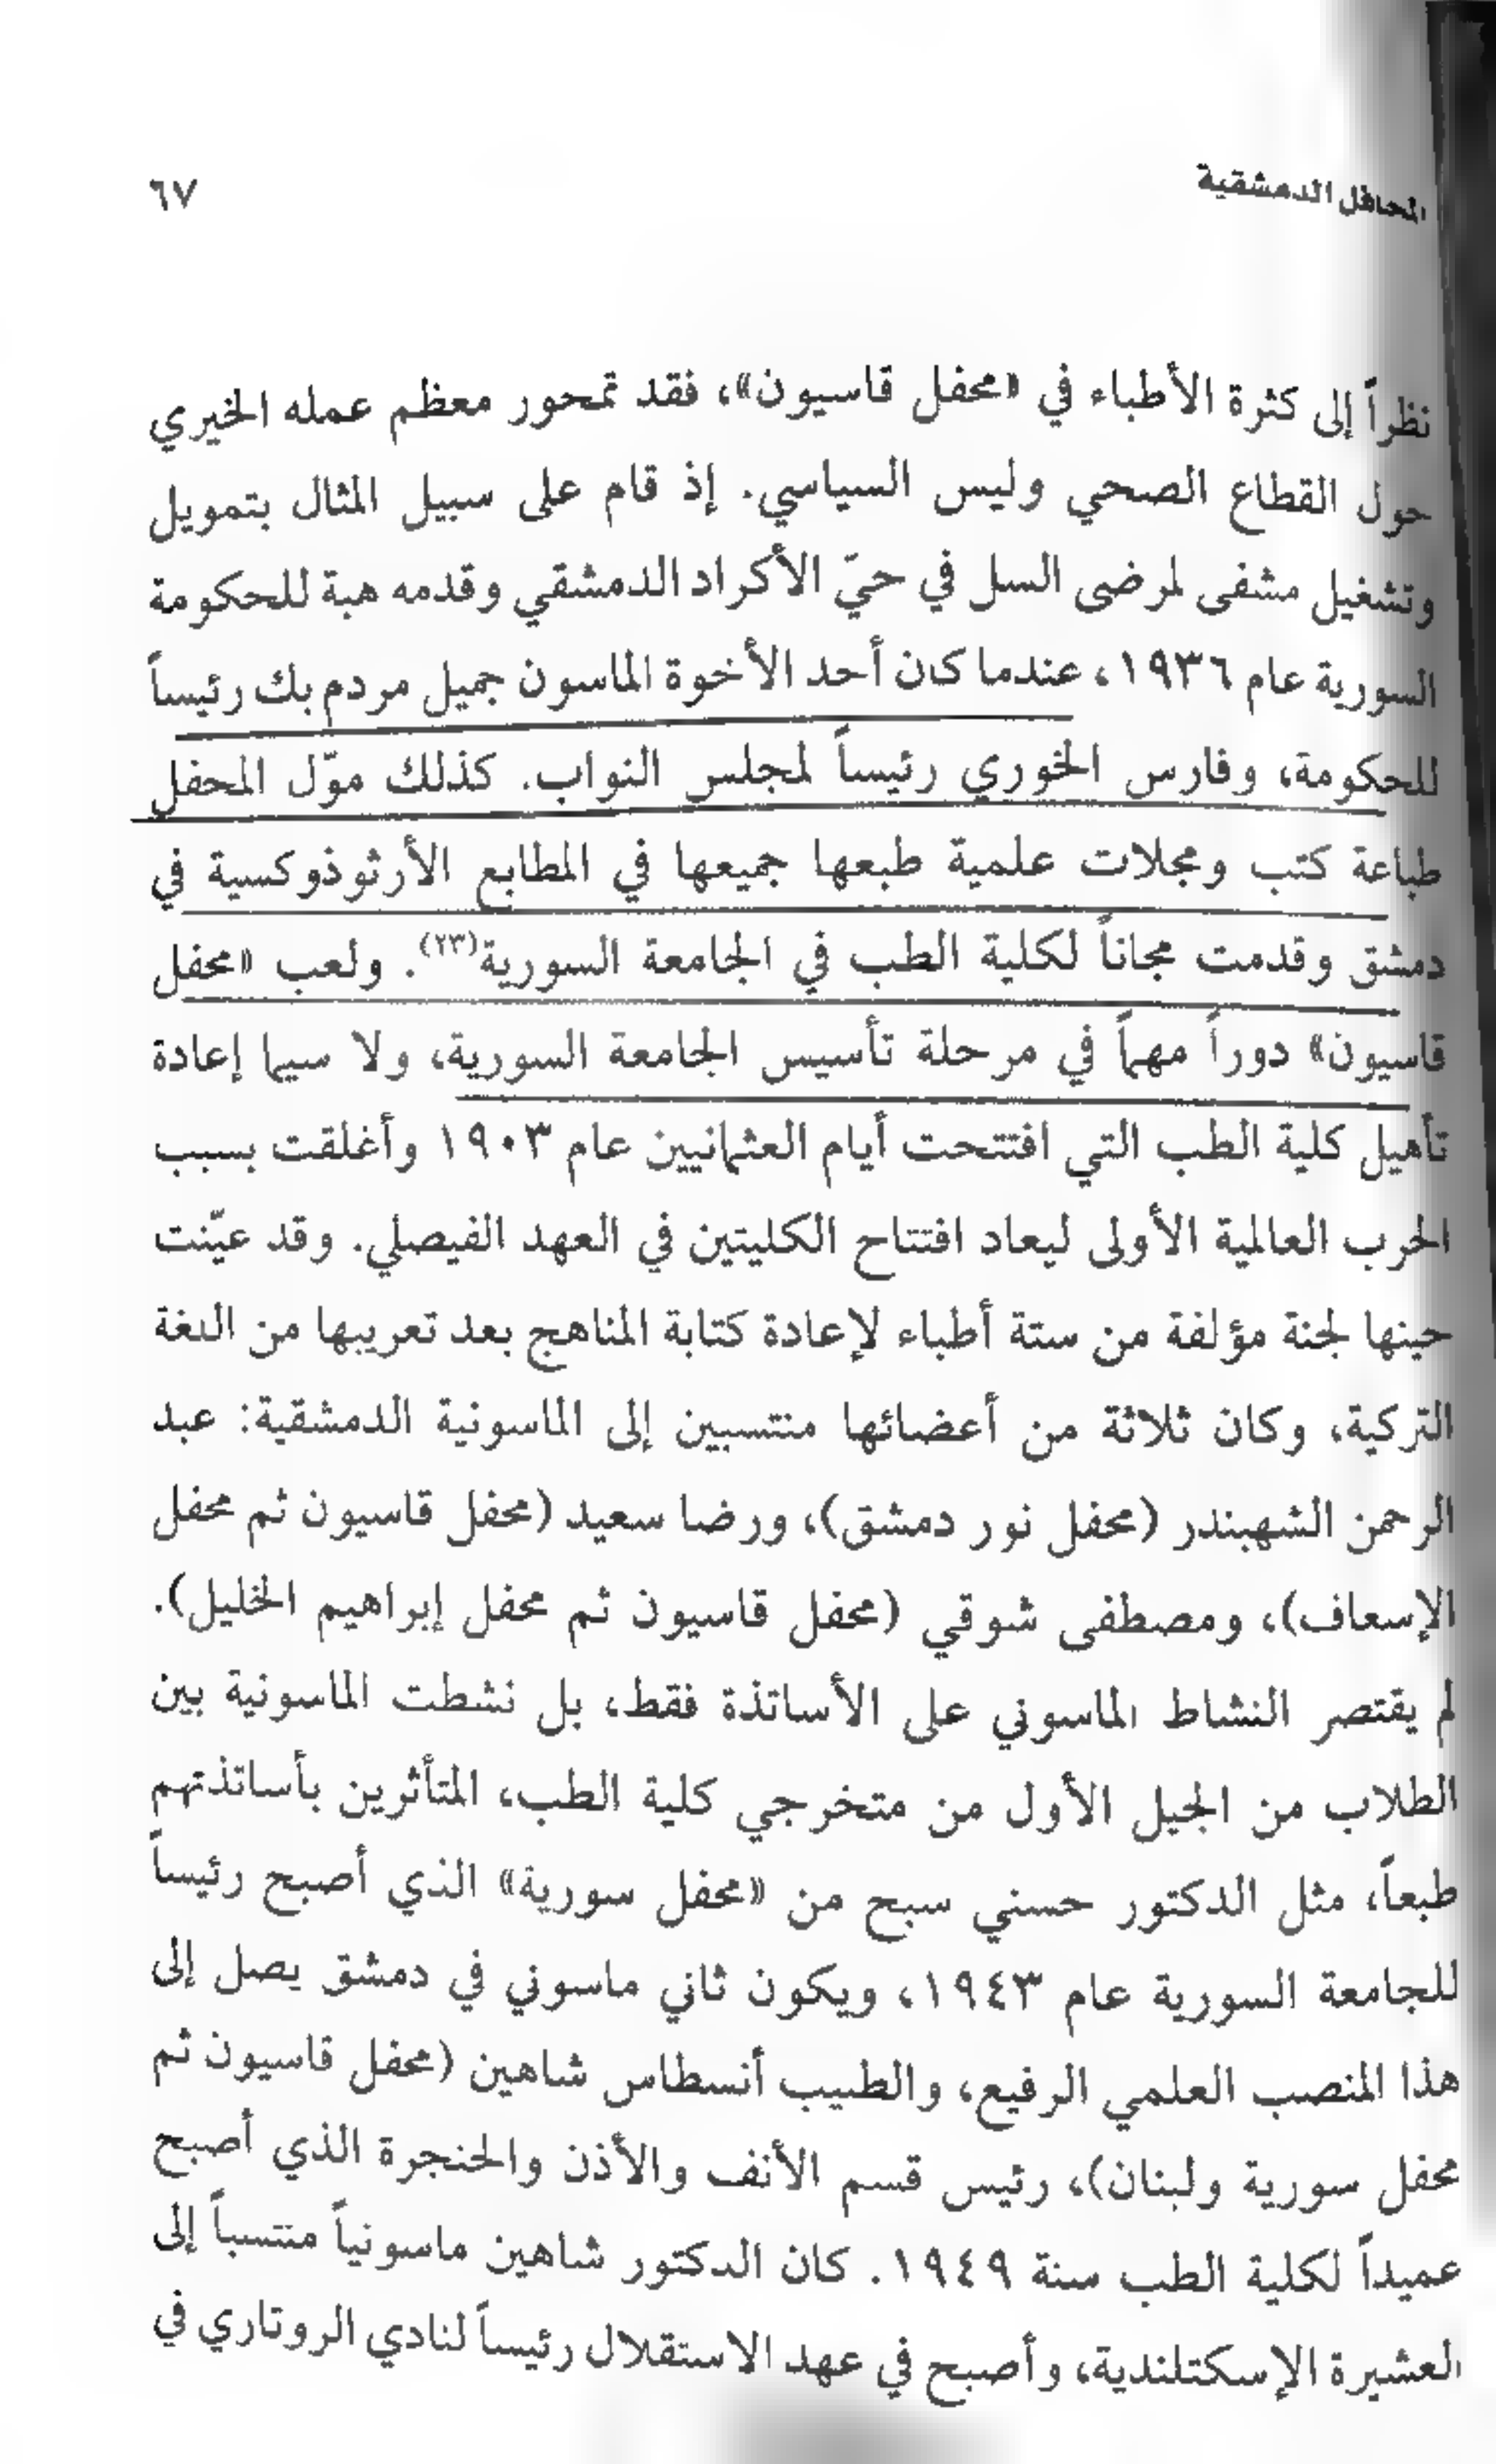 المحافل الدمشقية
٦٧
نظراً إلى كثرة الأطباء في «محفل قاسيون»، فقد تمحور معظم عمله الخيري
حول القطاع الصحي وليس السياسي. إذ قام على سبيل المثال بتمويل
وتشغيل مشفى لمرضى السل في حيّ الأكراد الدمشقي وقدمه هبة للحكومة
السورية عام ١٩٣٦، عندما كان أحد الأخوة الماسون جميل مردم بك رئيساً
للحكومة، وفارس الخوري رئيساً لمجلس النواب. كذلك موّل المحفل
طباعة كتب ومجلات علمية طبعها جميعها في المطابع الأرثوذوكسية في
دمشق وقدمت مجاناً لكلية الطب في الجامعة السورية(٢٣). ولعب «محفل
قاسيون» دوراً مهماً في مرحلة تأسيس الجامعة السورية، ولا سيما إعادة
تأهيل كلية الطب التي افتتحت أيام العثمانيين عام ١٩٠٣ وأغلقت بسبب
الحرب العالمية الأولى ليعاد افتتاح الكليتين في العهد الفيصلي. وقد عيّنت
حينها لجنة مؤلفة من ستة أطباء لإعادة كتابة المناهج بعد تعريبها من اللغة
التركية، وكان ثلاثة من أعضائها منتسبين إلى الماسونية الدمشقية: عبد
الرحمن الشهبندر (محفل نور دمشق)، ورضا سعيد (محفل قاسيون ثم محفل
الإسعاف)، ومصطفى شوقي (محفل قاسيون ثم محفل إبراهيم الخليل).
لم يقتصر النشاط الماسوني على الأساتذة فقط، بل نشطت الماسونية بين
الطلاب من الجيل الأول من متخرجي كلية الطب، المتأثرين بأساتذتهم
طبعاً، مثل الدكتور حسني سبح من «محفل سورية» الذي أصبح رئيساً
للجامعة السورية عام ١٩٤٣، ويكون ثاني ماسوني في دمشق يصل إلى
هذا المنصب العلمي الرفيع، والطبيب أنسطاس شاهين (محفل قاسيون ثم
محفل سورية ولبنان)، رئيس قسم الأنف والأذن والحنجرة الذي أصبح
عميداً لكلية الطب سنة ١٩٤٩. كان الدكتور شاهين ماسونياً منتسباً إلى
العشيرة الإسكتلندية، وأصبح في عهد الاستقلال رئيساً لنادي الروتاري في